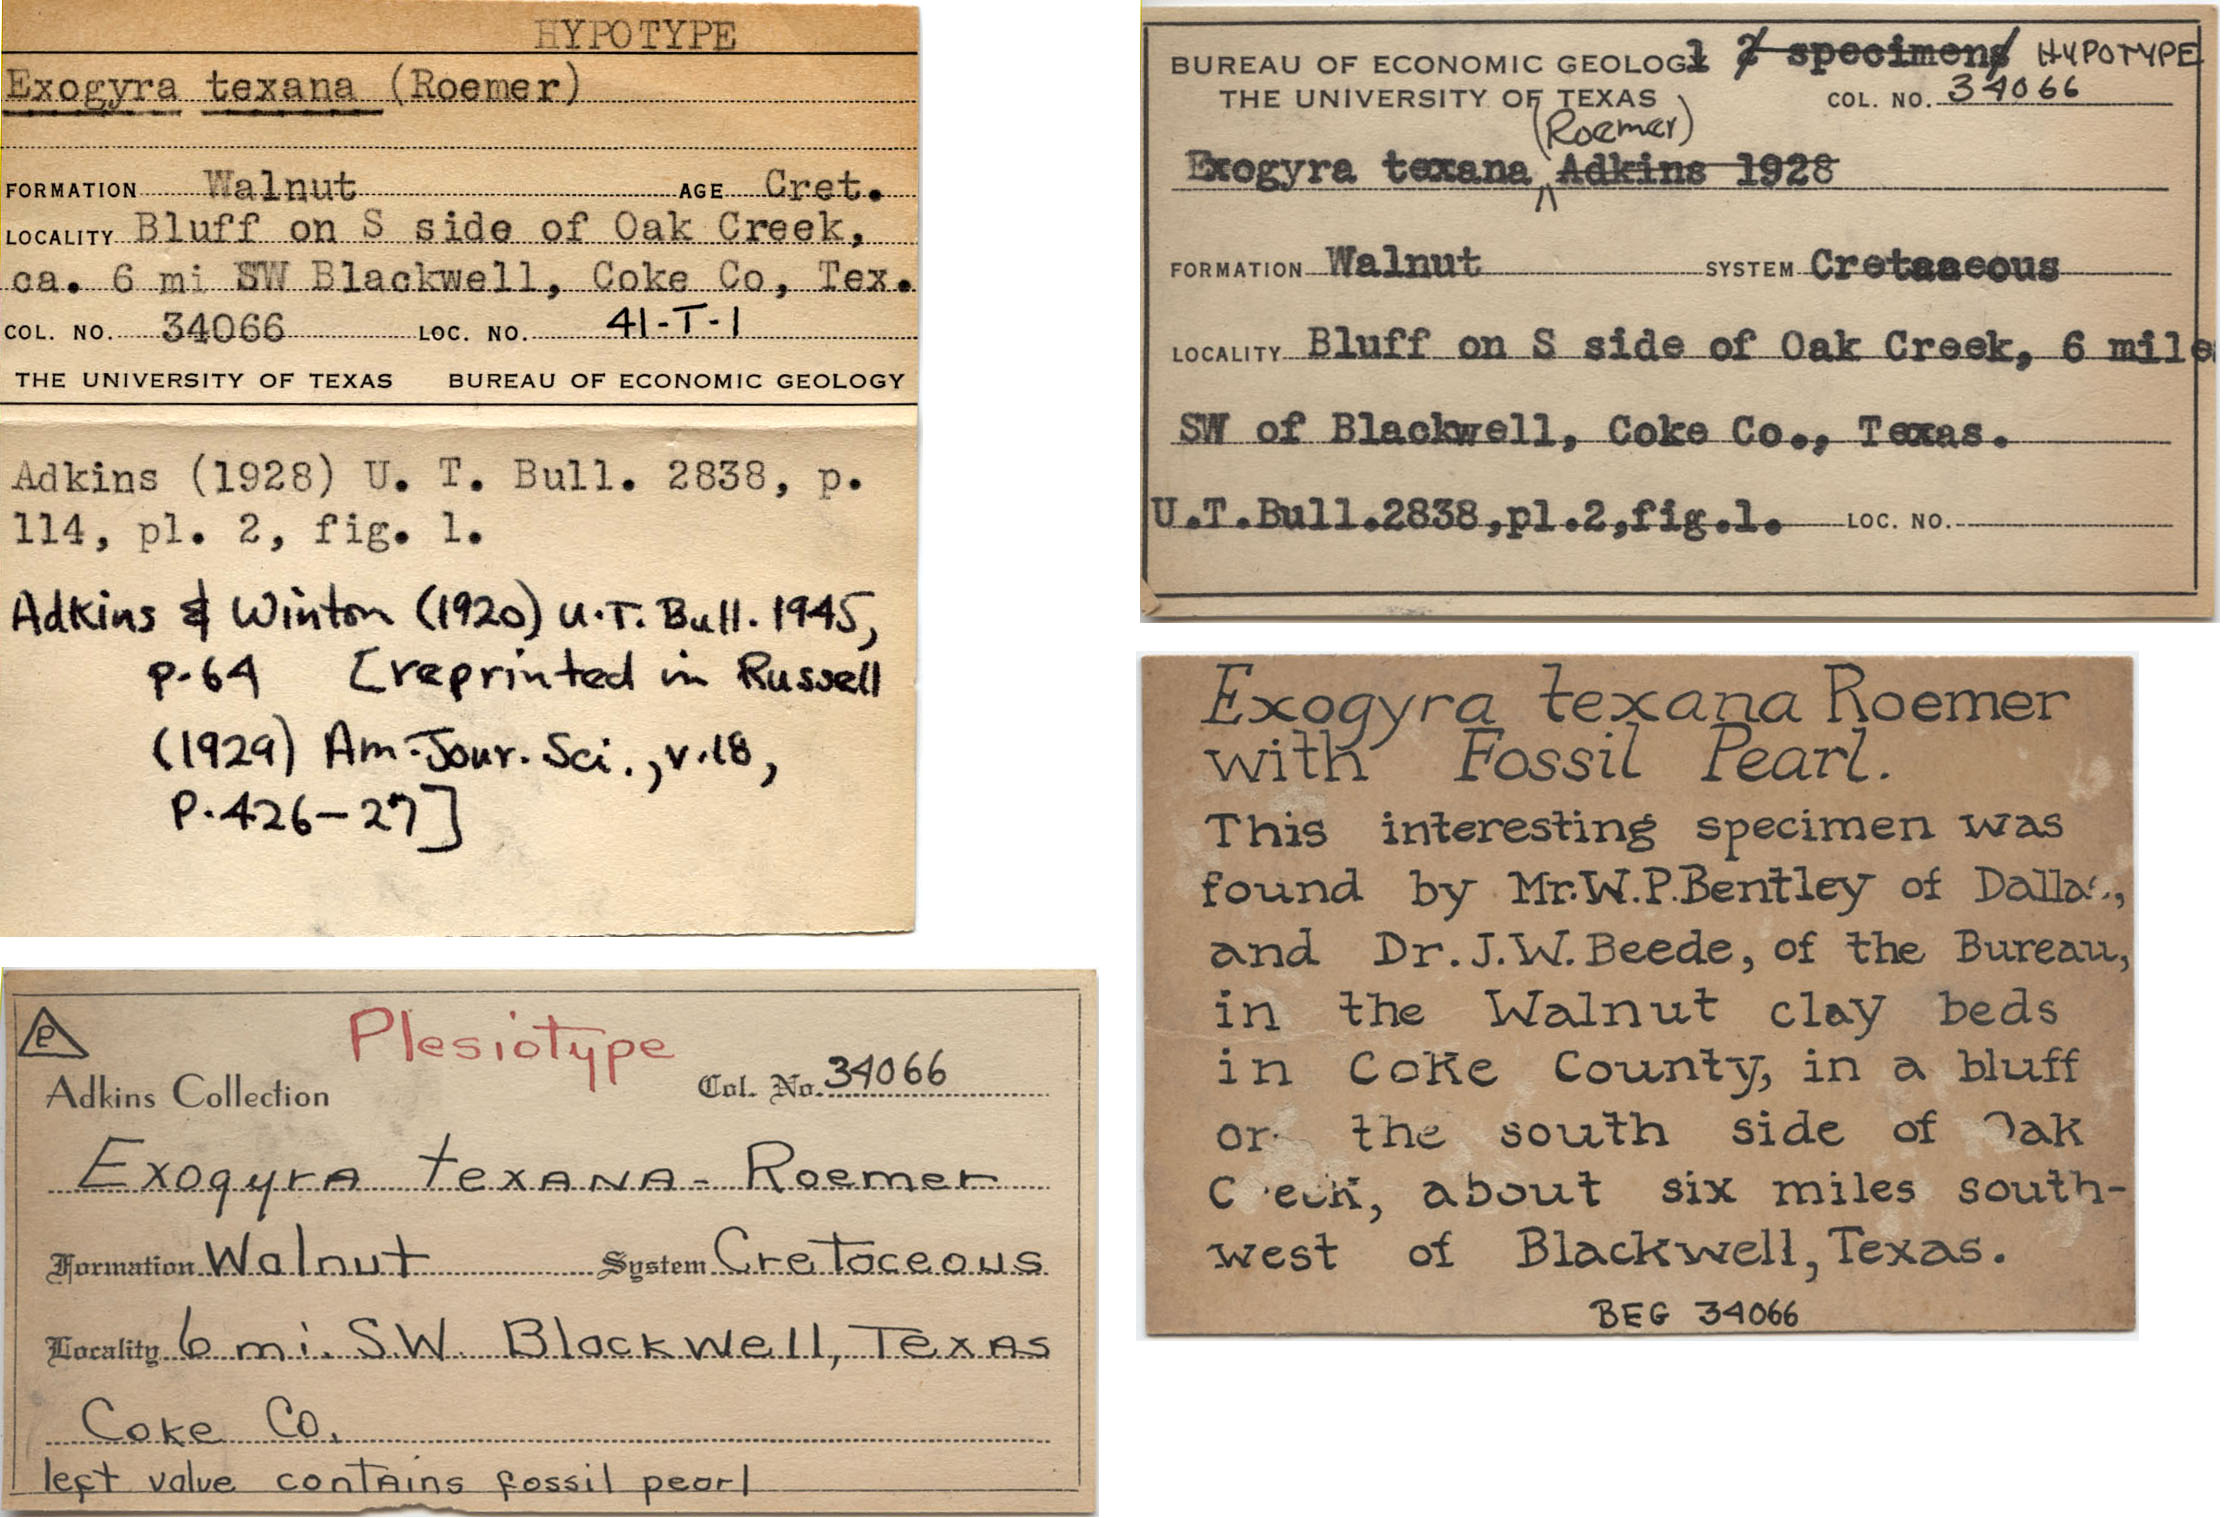 HYPOTYPE
Exogyra texana (Roemer)
FORMATION Walnut AGE Cret.
LOCALITY Bluff on S side of Oak Creek,
ca. 6 mi SW Blackwell, Coke Co, Tex.
COL. NO. 34066 LOC. NO. 41-T-1
THE UNIVERSITY OF TEXAS BUREAU OF ECONOMIC GEOLOGY
Adkins (1928) U. T. Bull. 2838, p.
114, pl. 2, fig. 1.
Adkins & Winton (1920) U.T. Bull. 1945,
p. 64 [reprinted in Russell
(1929) Am. Jour. Sci., v. 18,
p. 426-27]
P
Plesiotype
Adkins Collection Col. No. 34066
Exogyra texana - Roemer
Formation Walnut System Cretaceous
Locality 6 mi. S.W. Blackwell, Texas
Coke Co.
left valve contains fossil pearl
BUREAU OF ECONOMIC GEOLOG1 2 specimens HYPOTYPE
THE UNIVERSITY OF TEXAS COL. NO. 34066
(Roemer)
Exogyra texana Adkins 1928
FORMATION Walnut SYSTEM Cretaaeous
LOCALITY Bluff on S side of Oak Creek, 6 mile
SW of Blackwell, Coke Co., Texas.
U.T.Bull.2838,pl.2,fig.1. LOC. NO.
Exogyra texana Roemer
with Fossil Pearl.
This interesting specimen was
found by Mr.W.P.Bentley of Dallas,
and Dr.J.W.Beede, of the Bureau,
in the Walnut clay beds
in Coke County, in a bluff
on the south side of Oak
Creek, about six miles south-
west of Blackwell, Texas.
BEG 34066